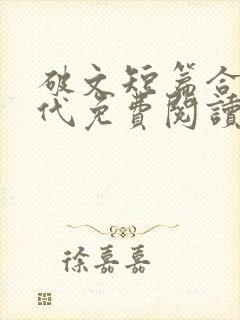 破文短篇合
代免費閱讀
徐嘉嘉